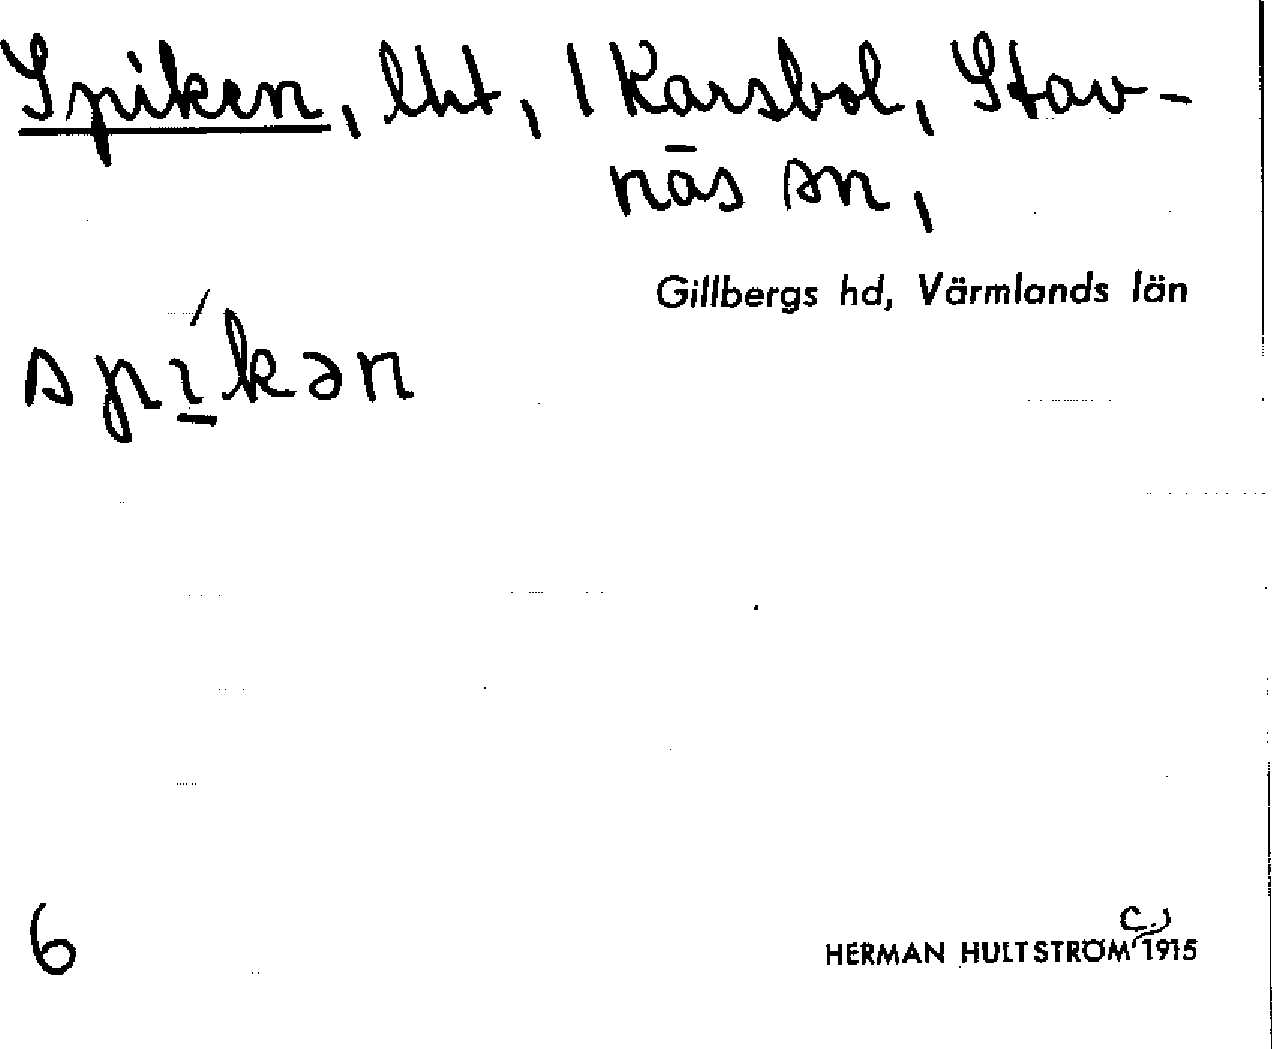 Spiken, lht, 1 Karsbol, Stav-
näs sn,
Gillbergs hd, Värmlands län
spíkən
6
HERMAN HULTSTRÖM C.) 1915